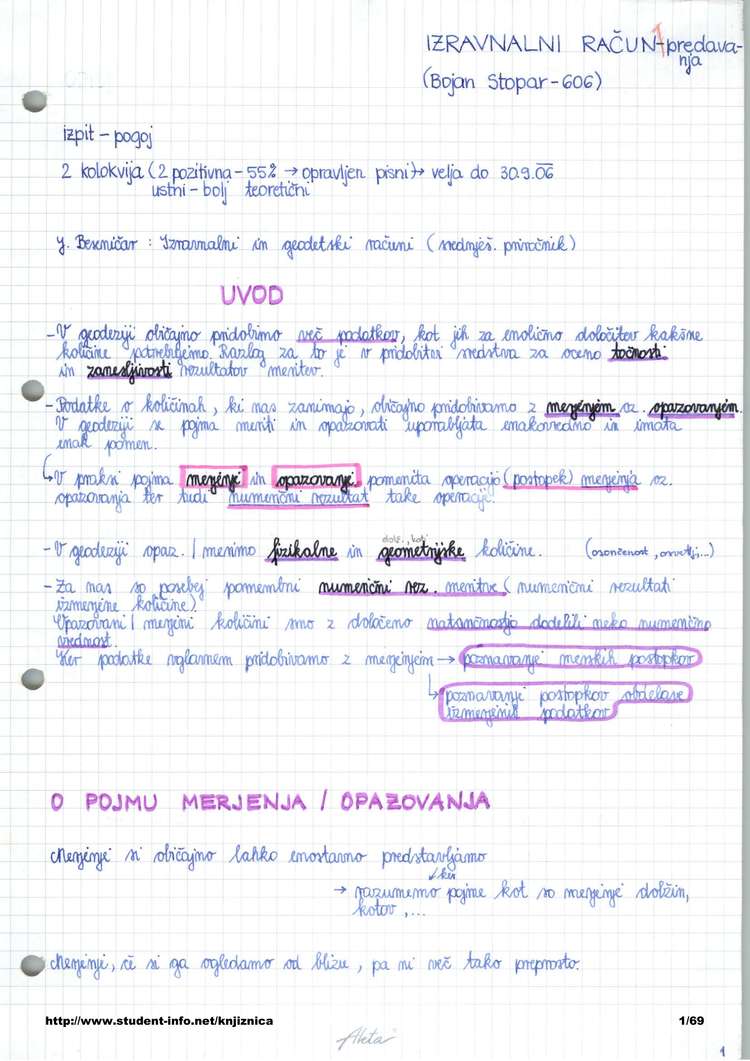 IZRAVNALNI RAČUN 1 - predava-
nja
(Bojan Stopar - 606)
izpit - pogoj
2 kolokvija (2 pozitivna - 55% → opravljen pisni) → velja do 30.9.06
ustni - bolj teoretični
Izravnalni in geodetski računi (srednješ. priročnik)
UVOD
- V geodeziji običajno pridobimo več podatkov, kot jih za enolično določitev kakšne
količine potrebujemo. Razlog za to je v pridobitvi sredstva za oceno točnosti
in zanesljivosti rezultatov meritev.
- Podatke o količinah, ki nas zanimajo, običajno pridobivamo z merjenjem oz. opazovanjem.
V geodeziji se pojma meriti in opazovati uporabljata enakovredno in imata
enak pomen.
↳ V praksi pojma merjenje in opazovanje pomenita operacijo (postopek) merjenja oz.
opazovanja ter tudi numerični rezultat take operacije.
dolž., koti
- V geodeziji opaz. / merimo fizikalne in geometrijske količine. (osončenost, osvetlj...)
- Za nas so posebej pomembni numerični rez. meritve (numerični rezultati
izmerjene količine)
Opazovani / merjeni količini smo z določeno natančnostjo dodelili neko numerično
vrednost.
Ker podatke vglavnem pridobivamo z merjenjem → poznavanje merskih postopkov
↳ poznavanje postopkov obdelave
izmerjenih podatkov
O POJMU MERJENJA / OPAZOVANJA
Merjenje si običajno lahko enostavno predstavljamo
↓ ker
→ razumemo pojme kot so merjenje dolžin,
kotov, ...
Merjenje, če si ga ogledamo od blizu, pa ni več tako preprosto.
http://www.student-info.net/knjiznica 1/69
1